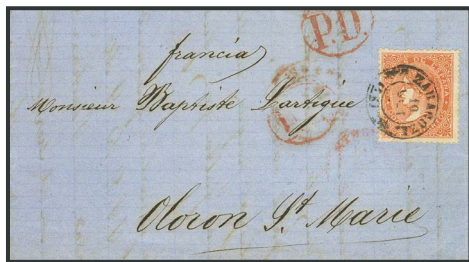 P.D.
francia
Monsieur Baptiste Lartigue
ZARAGOZA
Oloron Ste Marie